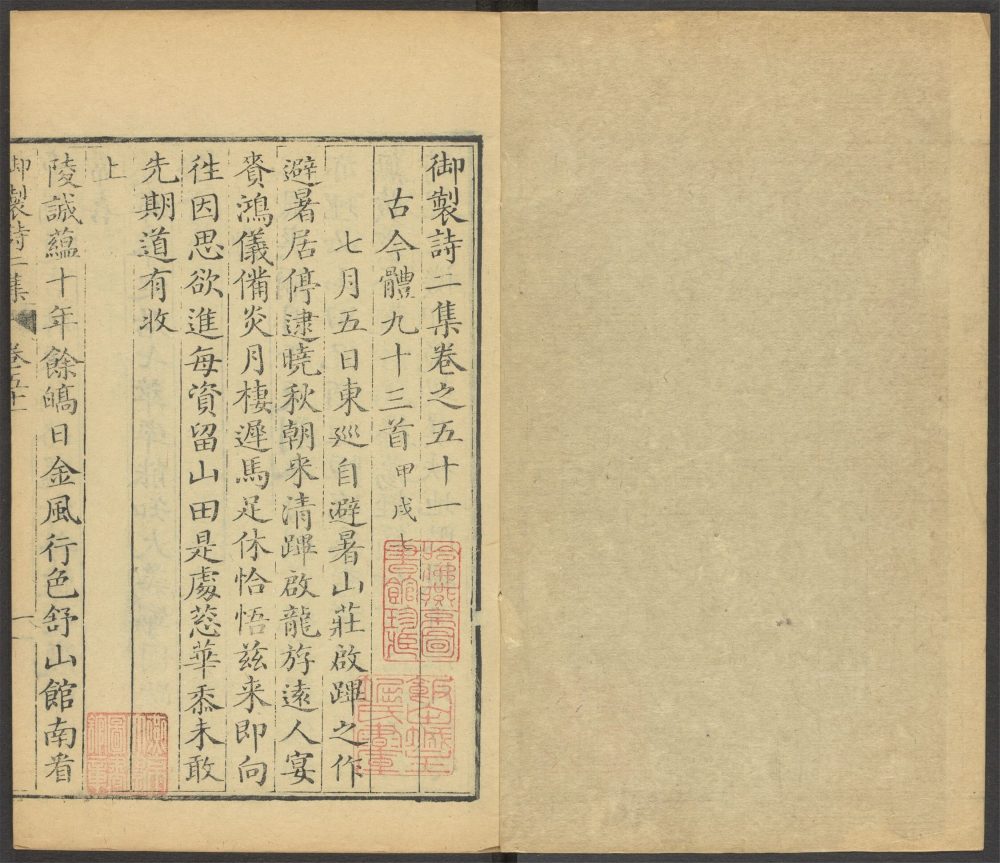 御製詩二集卷之五十一
古今體九十三首 甲戌七
七月五日東廵自避暑山莊啟蹕之作
避暑居停逮曉秋朝来清蹕啟龍斿遠人宴
賚鴻儀備炎月棲遲馬足休恰悟兹来即向
徃因思欲進每資留山田是處菍華黍未敢
先期道有收
上
陵誠蘊十年餘皜日金風行色舒山館南看
御製詩二集 卷五十一 一
哈佛燕京圖書館珍藏